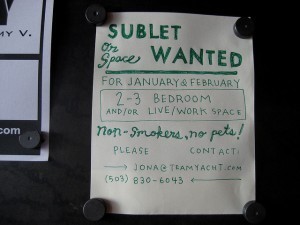 MY V.
.com
SUBLET
or Space WANTED
FOR JANUARY & FEBRUARY
2-3 BEDROOM
AND/OR LIVE/WORK SPACE
Non-Smokers, no pets!
PLEASE CONTACT:
→ JONA@TEAMYACHT.COM
(503) 830-6043 ←